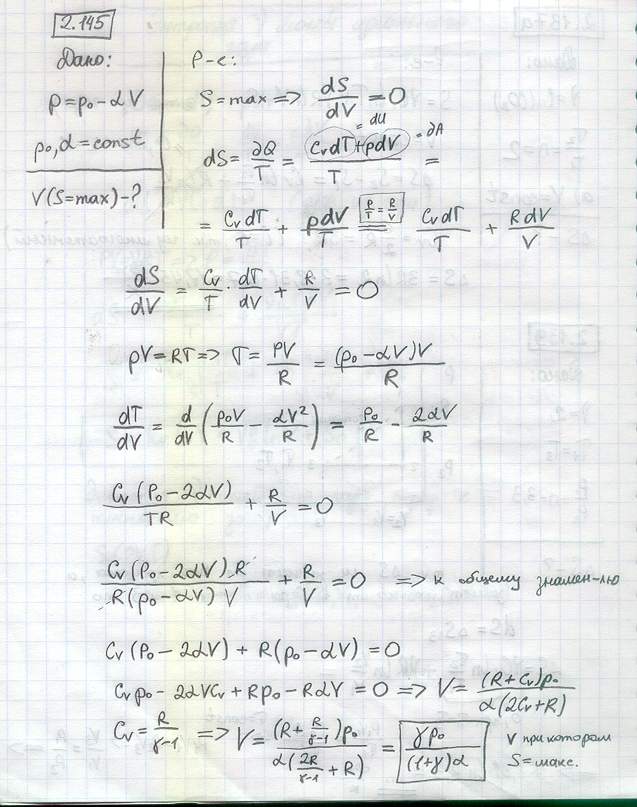 2.145
Дано:
p=p₀-αV
p₀,α=const
V(S=max)-?
Р-е:
S=max => dS/dV = 0
dS = ∂Q/T = (CᵥdT+pdV)/T =
= dU
= ∂A
= CᵥdT/T + pdV/T = CᵥdT/T + RdV/V
p/T = R/V
dS/dV = Cᵥ/T · dT/dV + R/V = 0
pV=RT => T = PV/R = (p₀-αV)V/R
dT/dV = d/dV (p₀V/R - αV²/R) = p₀/R - 2αV/R
Cᵥ(P₀-2αV)/TR + R/V = 0
Cᵥ(P₀-2αV)R/R(p₀-αV)V + R/V = 0 => к общему знамен-лю
Cᵥ(P₀-2αV) + R(p₀-αV) = 0
Cᵥp₀ - 2αVCᵥ + Rp₀ - RαV = 0 => V = (R+Cᵥ)p₀/α(2Cᵥ+R)
Cᵥ = R/γ-1 => V = (R + R/γ-1)p₀/α(2R/γ-1 + R) = γp₀/(1+γ)α
V при котором
S=макс.